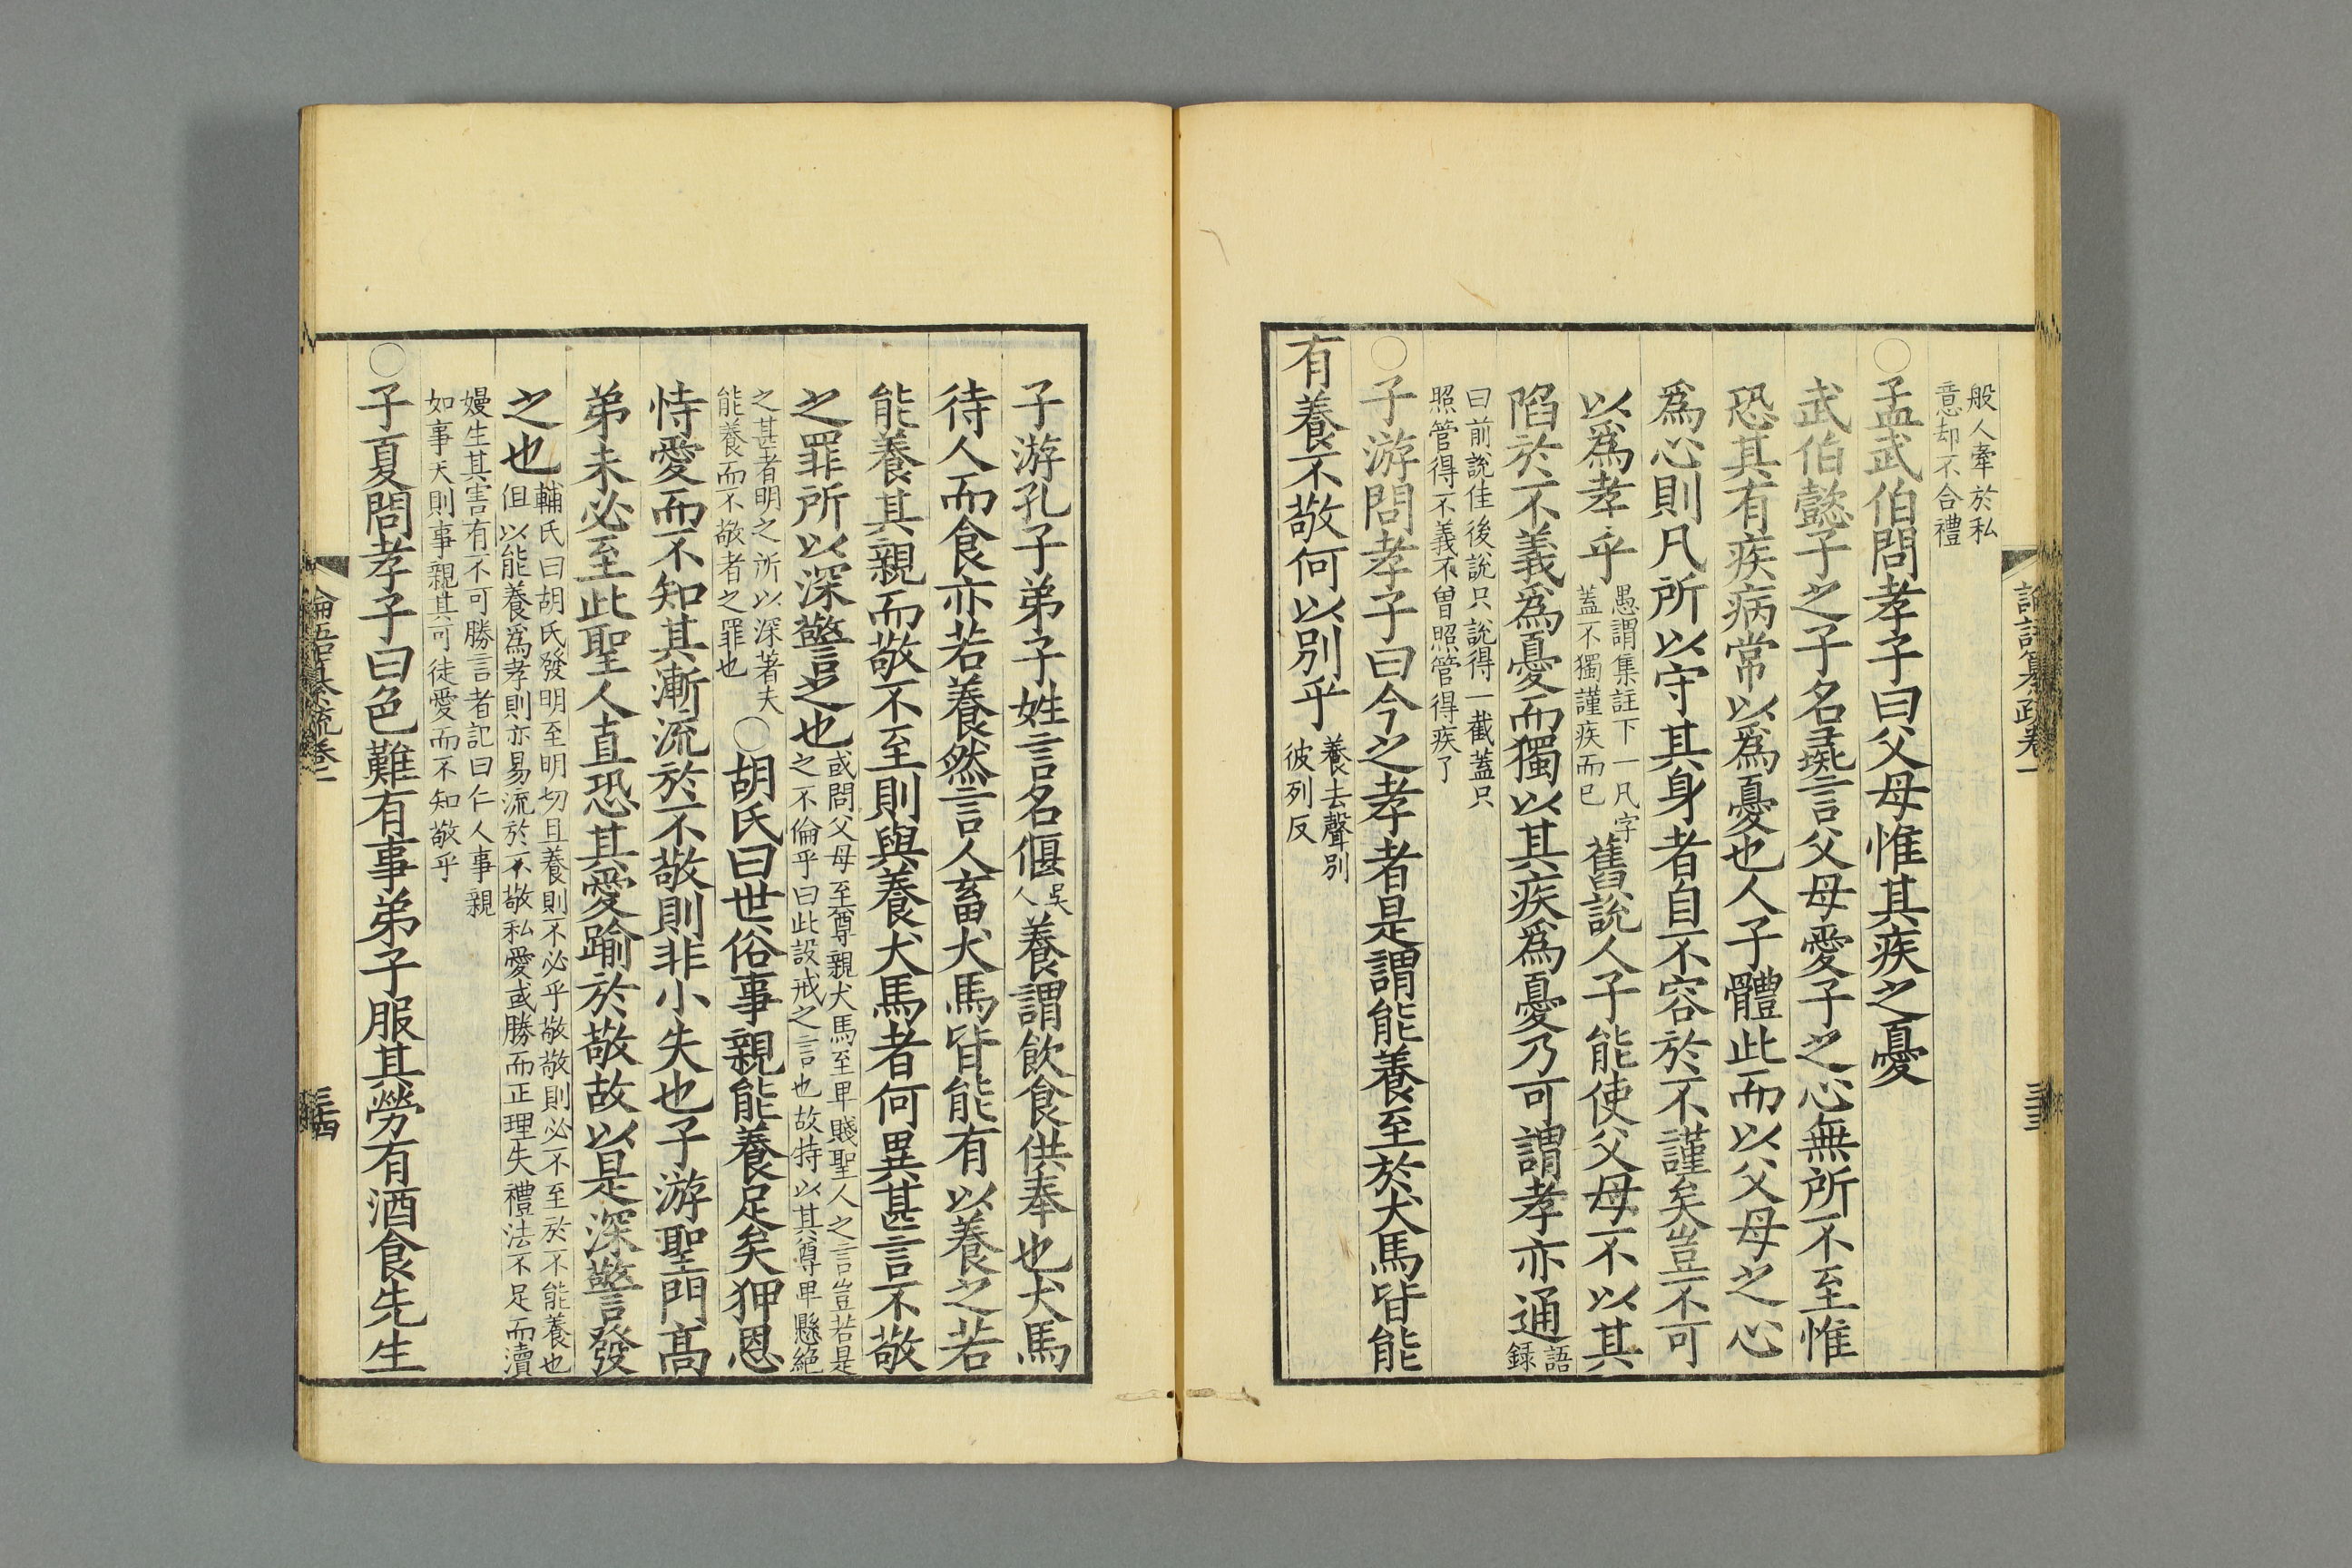 論語纂疏卷一
三十三
般人牽於私
意却不合禮
○孟武伯問孝子曰父母惟其疾之憂
武伯懿子之子名彘言父母愛子之心無所不至惟
恐其有疾病常以爲憂也人子體此而以父母之心
爲心則凡所以守其身者自不容於不謹矣豈不可
以爲孝乎
愚謂集註下一凡字
蓋不獨謹疾而已
舊說人子能使父母不以其
陷於不義爲憂而獨以其疾爲憂乃可謂孝亦通
語
録
曰前說佳後說只說得一截蓋只
照管得不義不曽照管得疾了
○子游問孝子曰今之孝者是謂能養至於犬馬皆能
有養不敬何以別乎
養去聲別
彼列反
子游孔子弟子姓言名偃
吳
人
養謂飲食供奉也犬馬
待人而食亦若養然言人畜犬馬皆能有以養之若
能養其親而敬不至則與養犬馬者何異甚言不敬
之罪所以深警之也
或問父母至尊親犬馬至卑賤聖人之言豈若是
之不倫乎曰此設戒之言也故持以其尊卑懸絶
之甚者明之所以深著夫
能養而不敬者之罪也
○胡氏曰世俗事親能養足矣狎恩
恃愛而不知其漸流於不敬則非小失也子游聖門高
弟未必至此聖人直恐其愛踰於敬故以是深警發
之也
輔氏曰胡氏發明至明切且養則不必乎敬敬則必不至於不能養也
但以能養爲孝則亦易流於不敬私愛或勝而正理失禮法不足而瀆
嫚生其害有不可勝言者記曰仁人事親
如事天則事親其可徒愛而不知敬乎
○子夏問孝子曰色難有事弟子服其勞有酒食先生
論語纂疏卷一
三十四